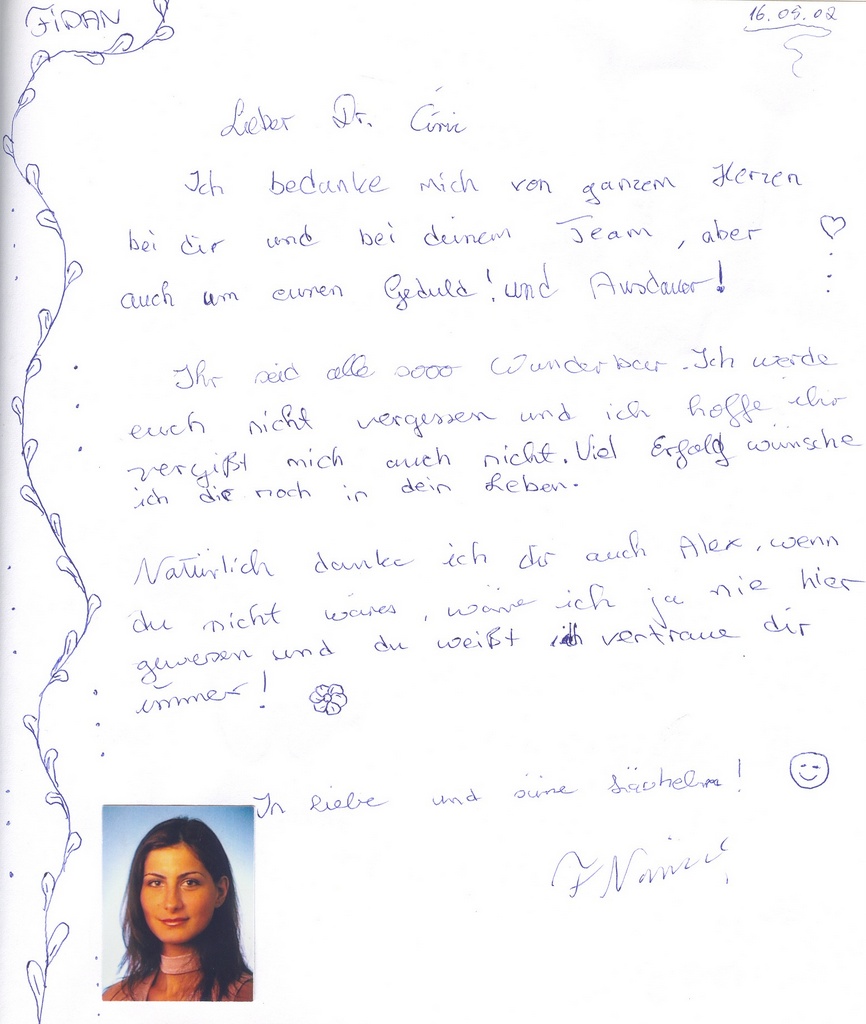 FIDAN
16.09.02
Lieber Dr. Ciric
Ich bedanke mich von ganzem Herzen
bei dir und bei deinem Team, aber
auch um euren Geduld! und Ausdauer!
Ihr seid alle sooo Wunderbar. Ich werde
euch nicht vergessen und ich hoffe ihr
vergißt mich auch nicht. Viel Erfolg wünsche
ich dir noch in dein Leben.
Natürlich danke ich dir auch Alex, wenn
du nicht wäres, wäre ich ja nie hier
gewesen und du weißt ich vertraue dir
immer!
In liebe und süße Lächeln!